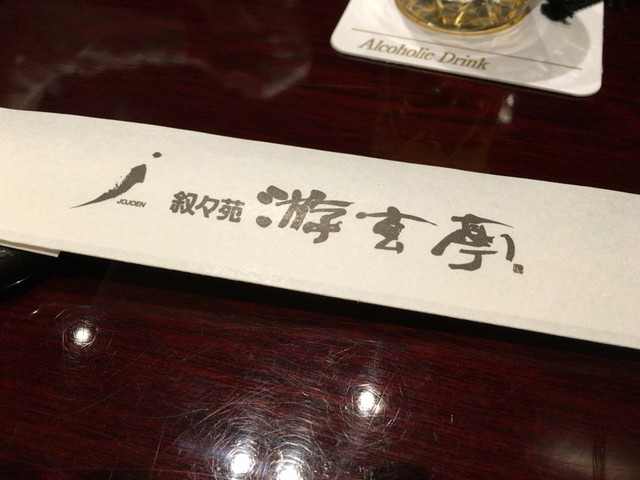 Alcoholic Drink
JOJOEN
叙々苑 游玄亭